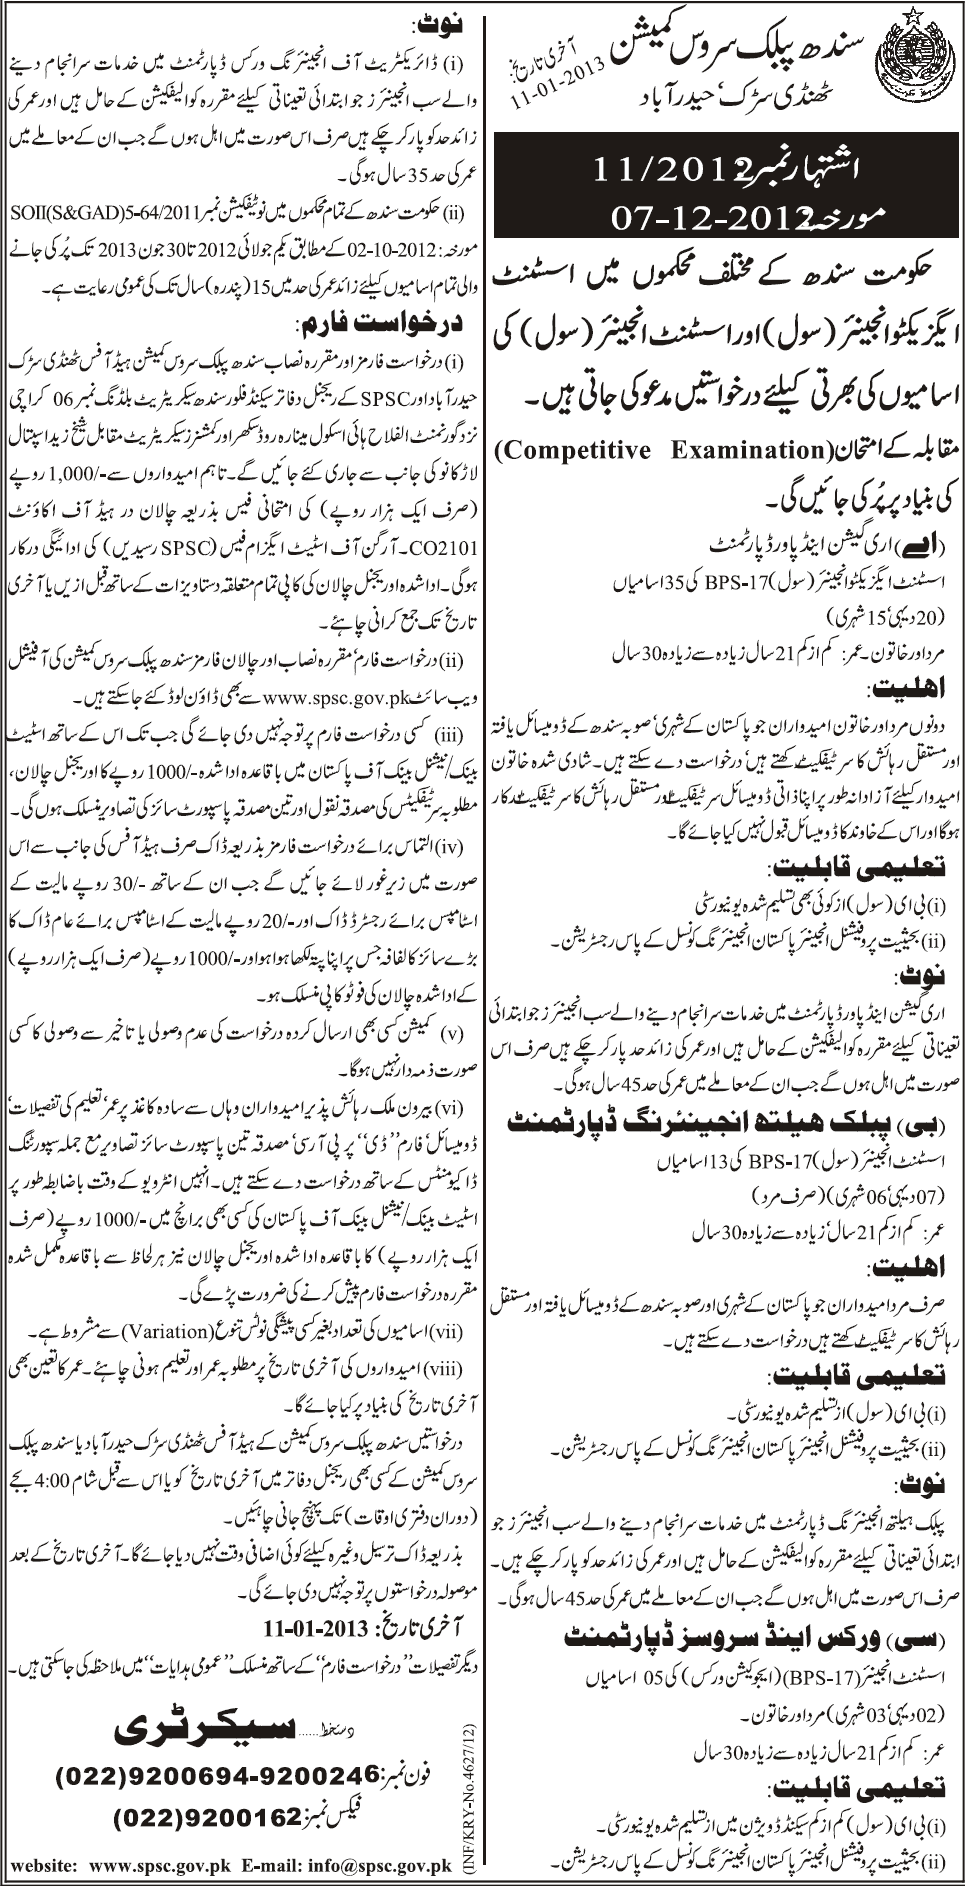 سندھ پبلک سروس کمیشن
ٹھنڈی سڑک، حیدرآباد
آخری تاریخ:
11-01-2013
اشتہار نمبر 11/2012
مورخہ 07-12-2012
حکومت سندھ کے مختلف محکموں میں اسسٹنٹ
ایگزیکٹو انجینئر (سول) اور اسسٹنٹ انجینئر (سول) کی
اسامیوں کی بھرتی کیلئے درخواستیں مدعو کی جاتی ہیں۔
مقابلہ کے امتحان (Competitive Examination)
کی بنیاد پر پُر کی جائیں گی۔
(اے) اری گیشن اینڈ پاور ڈپارٹمنٹ
اسسٹنٹ ایگزیکٹو انجینئر (سول) BPS-17 کی 35 اسامیاں
(20 دیہی، 15 شہری)
مرد اور خاتون۔ عمر: کم از کم 21 سال زیادہ سے زیادہ 30 سال
اہلیت:
دونوں مرد اور خاتون امیدواران جو پاکستان کے شہری، صوبہ سندھ کے ڈومیسائل یافتہ
اور مستقل رہائش کا سرٹیفکیٹ رکھتے ہیں، درخواست دے سکتے ہیں۔ شادی شدہ خاتون
امیدوار کیلئے آزادانہ طور پر اپنا ذاتی ڈومیسائل سرٹیفکیٹ اور مستقل رہائش کا سرٹیفکیٹ درکار
ہوگا اور اس کے خاوند کا ڈومیسائل قبول نہیں کیا جائے گا۔
تعلیمی قابلیت:
(i) بی ای (سول) از کوئی بھی تسلیم شدہ یونیورسٹی
(ii) بحیثیت پروفیشنل انجینئر پاکستان انجینئرنگ کونسل کے پاس رجسٹریشن۔
نوٹ:
اری گیشن اینڈ پاور ڈپارٹمنٹ میں خدمات سرانجام دینے والے سب انجینئرز جو ابتدائی
تعیناتی کیلئے مقررہ کوالیفکیشن کے حامل ہیں اور عمر کی زائد حد پار کرچکے ہیں صرف اس
صورت میں اہل ہوں گے جب ان کے معاملے میں عمر کی حد 45 سال ہوگی۔
(بی) پبلک ہیلتھ انجینئرنگ ڈپارٹمنٹ
اسسٹنٹ انجینئر (سول) BPS-17 کی 13 اسامیاں
(07 دیہی، 06 شہری) (صرف مرد)
عمر: کم از کم 21 سال، زیادہ سے زیادہ 30 سال
اہلیت:
صرف مرد امیدواران جو پاکستان کے شہری اور صوبہ سندھ کے ڈومیسائل یافتہ اور مستقل
رہائش کا سرٹیفکیٹ رکھتے ہیں درخواست دے سکتے ہیں۔
تعلیمی قابلیت:
(i) بی ای (سول) از تسلیم شدہ یونیورسٹی۔
(ii) بحیثیت پروفیشنل انجینئر پاکستان انجینئرنگ کونسل کے پاس رجسٹریشن۔
نوٹ:
پبلک ہیلتھ انجینئرنگ ڈپارٹمنٹ میں خدمات سرانجام دینے والے سب انجینئرز جو
ابتدائی تعیناتی کیلئے مقررہ کوالیفکیشن کے حامل ہیں اور عمر کی زائد حد کو پار کرچکے ہیں۔
صرف اس صورت میں اہل ہوں گے جب ان کے معاملے میں عمر کی حد 45 سال ہوگی۔
(سی) ورکس اینڈ سروسز ڈپارٹمنٹ
اسسٹنٹ انجینئر (BPS-17) (ایجوکیشن ورکس) کی 05 اسامیاں
(02 دیہی، 03 شہری) مرد اور خاتون۔
عمر: کم از کم 21 سال زیادہ سے زیادہ 30 سال
تعلیمی قابلیت:
(i) بی ای (سول) کم از کم سیکنڈ ڈویژن میں از تسلیم شدہ یونیورسٹی۔
(ii) بحیثیت پروفیشنل انجینئر پاکستان انجینئرنگ کونسل کے پاس رجسٹریشن۔
نوٹ:
(i) ڈائریکٹریٹ آف انجینئرنگ ورکس ڈپارٹمنٹ میں خدمات سرانجام دینے
والے سب انجینئرز جو ابتدائی تعیناتی کیلئے مقررہ کوالیفکیشن کے حامل ہیں اور عمر کی
زائد حد کو پار کرچکے ہیں صرف اس صورت میں اہل ہوں گے جب ان کے معاملے میں
عمر کی حد 35 سال ہوگی۔
(ii) حکومت سندھ کے تمام محکموں میں نوٹیفکیشن نمبر SOII(S&GAD)5-64/2011
مورخہ: 02-10-2012 کے مطابق یکم جولائی 2012 تا 30 جون 2013 تک پُر کی جانے
والی تمام اسامیوں کیلئے زائد عمر کی حد میں 15 (پندرہ) سال تک کی عمومی رعایت ہے۔
درخواست فارم:
(i) درخواست فارمز اور مقررہ نصاب سندھ پبلک سروس کمیشن ہیڈ آفس ٹھنڈی سڑک
حیدرآباد اور SPSC کے ریجنل دفاتر سیکنڈ فلور سندھ سیکریٹریٹ بلڈنگ نمبر 06 کراچی
نزد گورنمنٹ الفلاح ہائی اسکول مینارہ روڈ سکھر اور کمشنرز سیکریٹریٹ مقابل شیخ زید اسپتال
لاڑکانو کی جانب سے جاری کئے جائیں گے۔ تاہم امیدواروں سے -/1,000 روپے
(صرف ایک ہزار روپے) کی امتحانی فیس بذریعہ چالان در ہیڈ آف اکاؤنٹ
CO2101۔ آرگن آف اسٹیٹ ایگزام فیس (SPSC رسیدیں) کی ادائیگی درکار
ہوگی۔ ادا شدہ اوریجنل چالان کی کاپی تمام متعلقہ دستاویزات کے ساتھ قبل ازیں یا آخری
تاریخ تک جمع کرانی چاہئے۔
(ii) درخواست فارم، مقررہ نصاب اور چالان فارمز سندھ پبلک سروس کمیشن کی آفیشل
ویب سائٹ www.spsc.gov.pk سے بھی ڈاؤن لوڈ کئے جاسکتے ہیں۔
(iii) کسی درخواست فارم پر توجہ نہیں دی جائے گی جب تک اس کے ساتھ اسٹیٹ
بینک/نیشنل بینک آف پاکستان میں باقاعدہ ادا شدہ -/1000 روپے کا اوریجنل چالان،
مطلوبہ سرٹیفکیٹس کی مصدقہ نقول اور تین مصدقہ پاسپورٹ سائز کی تصاویر منسلک ہوں گی۔
(iv) التماس برائے درخواست فارمز بذریعہ ڈاک صرف ہیڈ آفس کی جانب سے اس
صورت میں زیر غور لائے جائیں گے جب ان کے ساتھ -/30 روپے مالیت کے
اسٹامپس برائے رجسٹرڈ ڈاک اور -/20 روپے مالیت کے اسٹامپس برائے عام ڈاک کا
بڑے سائز کا لفافہ جس پر اپنا پتہ لکھا ہوا ہو اور -/1000 روپے (صرف ایک ہزار روپے)
کے ادا شدہ چالان کی فوٹو کاپی منسلک ہو۔
(v) کمیشن کسی بھی ارسال کردہ درخواست کی عدم وصولی یا تاخیر سے وصولی کا کسی
صورت ذمہ دار نہیں ہوگا۔
(vi) بیرون ملک رہائش پذیر امیدواران وہاں سے سادہ کاغذ پر عمر، تعلیم کی تفصیلات،
ڈومیسائل، فارم ’’ڈی‘‘ پر پی آر سی، مصدقہ تین پاسپورٹ سائز تصاویر مع جملہ سپورٹنگ
ڈاکیومنٹس کے ساتھ درخواست دے سکتے ہیں۔ انہیں انٹرویو کے وقت باضابطہ طور پر
اسٹیٹ بینک/نیشنل بینک آف پاکستان کی کسی بھی برانچ میں -/1000 روپے (صرف
ایک ہزار روپے) کا باقاعدہ ادا شدہ اوریجنل چالان نیز ہر لحاظ سے باقاعدہ مکمل شدہ
مقررہ درخواست فارم پیش کرنے کی ضرورت پڑے گی۔
(vii) اسامیوں کی تعداد بغیر کسی پیشگی نوٹس تنوع (Variation) سے مشروط ہے۔
(viii) امیدواروں کی آخری تاریخ پر مطلوبہ عمر اور تعلیم ہونی چاہئے۔ عمر کا تعین بھی
آخری تاریخ کی بنیاد پر کیا جائے گا۔
درخواستیں سندھ پبلک سروس کمیشن کے ہیڈ آفس ٹھنڈی سڑک حیدرآباد یا سندھ پبلک
سروس کمیشن کے کسی بھی ریجنل دفاتر میں آخری تاریخ کو یا اس سے قبل شام 4:00 بجے
(دوران دفتری اوقات) تک پہنچ جانی چاہئیں۔
بذریعہ ڈاک ترسیل وغیرہ کیلئے کوئی اضافی وقت نہیں دیا جائے گا۔ آخری تاریخ کے بعد
موصولہ درخواستوں پر توجہ نہیں دی جائے گی۔
آخری تاریخ: 11-01-2013
دیگر تفصیلات ’’درخواست فارم‘‘ کے ساتھ منسلک ’’عمومی ہدایات‘‘ میں ملاحظہ کی جاسکتی ہیں۔
دستخط......سیکرٹری
فون نمبر: (022)9200694-9200246
فیکس نمبر: (022)9200162
(INF/KRY-No.4627/12)
website: www.spsc.gov.pk E-mail: info@spsc.gov.pk